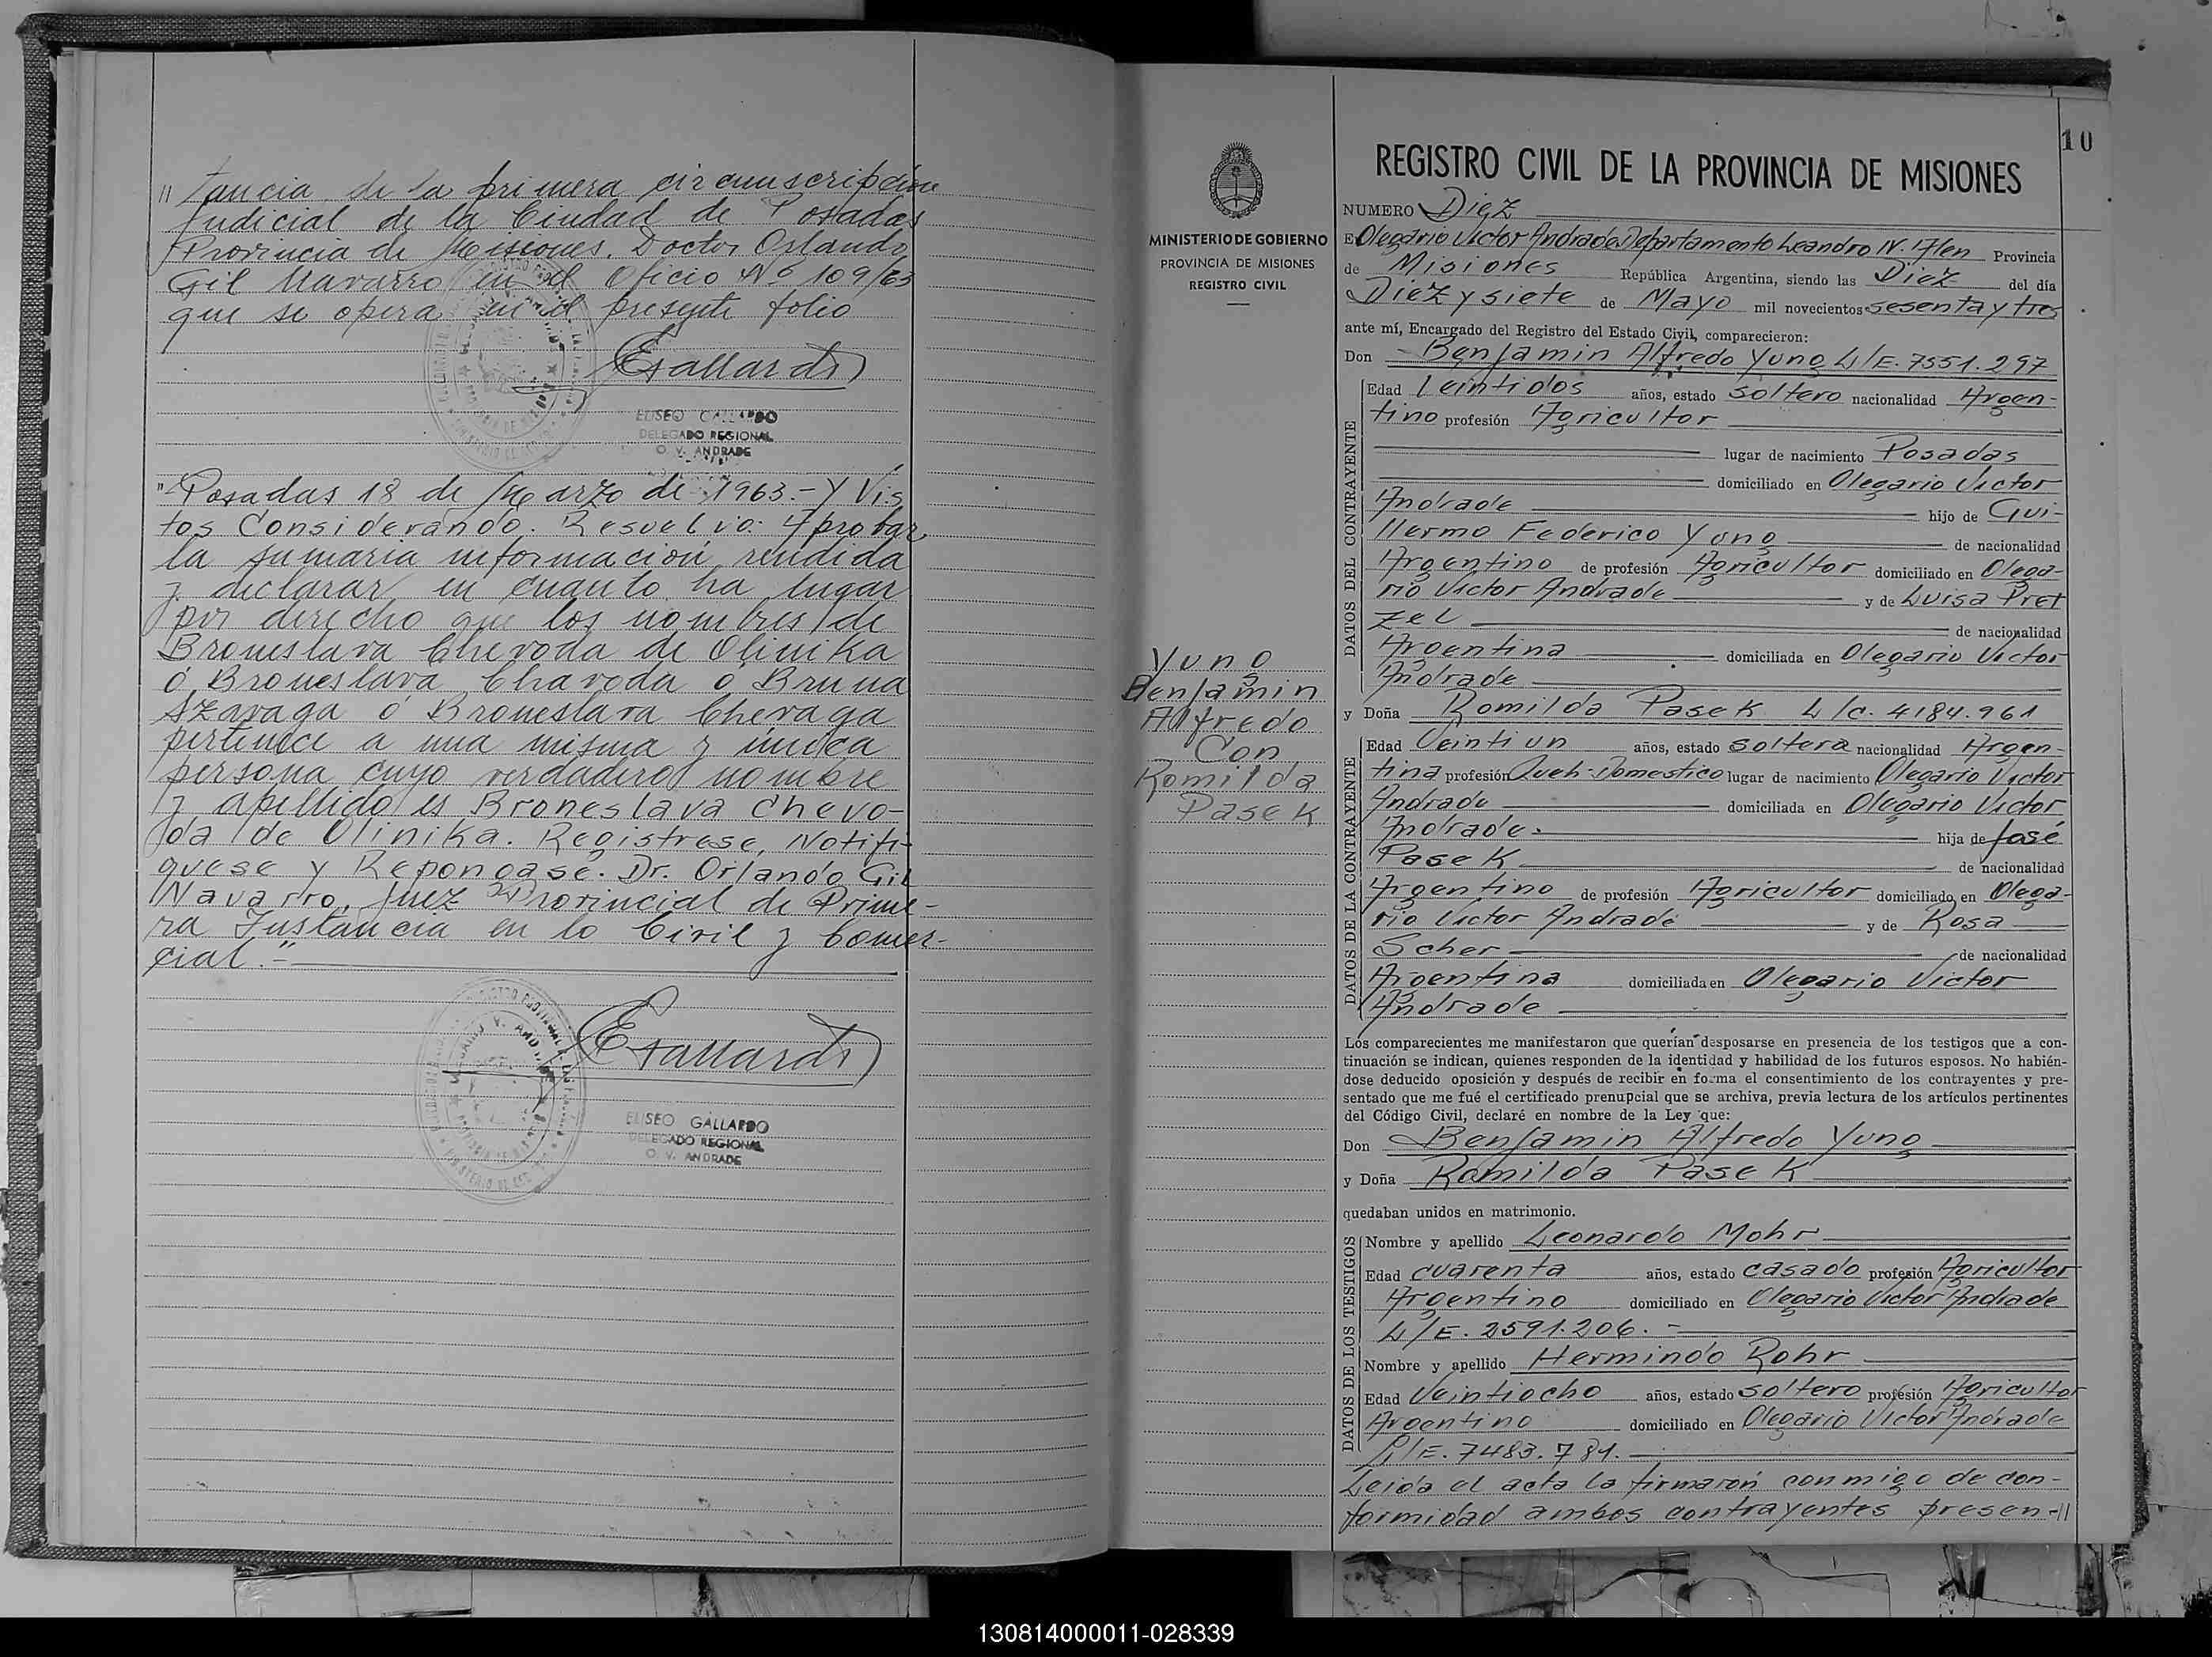 " tancia de la primera circunscripción
Judicial de la Ciudad de Posadas
Provincia de Misiones. Doctor Orlando
Gil Navarro en el Oficio Nº 109/63
que se opera en el presente folio
EGallardo
ELISEO GALLARDO
DELEGADO REGIONAL
O. V. ANDRADE
"Posadas 18 de Marzo de 1963.- Y Vis
tos Considerando. Resuelvo: Aprobar
la sumaria información rendida
y declarar en cuanto ha lugar
por derecho que los nombres de
Broneslava Chevoda de Olinika
ó Broneslava Chavoda o Bruna
Szavaga ó Broneslava Chevaga
pertenece a una misma y única
persona cuyo verdadero nombre
y apellido es Broneslava Chevo-
da de Olinika. Registrese, Notifi-
quese y Repongase. Dr. Orlando Gil
Navarro, Juez Provincial de Prime-
ra Instancia en lo Civil y Comer-
cial."-
EGallardo
ELISEO GALLARDO
DELEGADO REGIONAL
O. V. ANDRADE
MINISTERIO DE GOBIERNO
PROVINCIA DE MISIONES
REGISTRO CIVIL
Yung
Benjamin
Alfredo
Con
Romilda
Pasek
10
REGISTRO CIVIL DE LA PROVINCIA DE MISIONES
NUMERO Diez
En Olegario Victor Andrade Departamento Leandro N. Alen Provincia
de Misiones República Argentina, siendo las Diez del día
Diez y siete de Mayo mil novecientos sesenta y tres
ante mí, Encargado del Registro del Estado Civil, comparecieron:
Don Benjamin Alfredo Yung L/E. 7551.297
DATOS DEL CONTRAYENTE
Edad Veintidos años, estado soltero nacionalidad Argen-
tino profesión Agricultor
lugar de nacimiento Posadas
domiciliado en Olegario Victor
Andrade hijo de Gui-
llermo Federico Yung de nacionalidad
Argentino de profesión Agricultor domiciliado en Olega-
rio Victor Andrade y de Luisa Pret
zel de nacionalidad
Argentina domiciliada en Olegario Victor
Andrade
y Doña Romilda Pasek L/C. 4184.961
DATOS DE LA CONTRAYENTE
Edad Veintiun años, estado soltera nacionalidad Argen-
tina profesión Queh. Domestico lugar de nacimiento Olegario Victor
Andrade domiciliada en Olegario Victor
Andrade. hija de José
Pasek de nacionalidad
Argentino de profesión Agricultor domiciliado en Olega-
rio Victor Andrade y de Rosa
Scher de nacionalidad
Argentina domiciliada en Olegario Victor
Andrade
Los comparecientes me manifestaron que querían desposarse en presencia de los testigos que a con-
tinuación se indican, quienes responden de la identidad y habilidad de los futuros esposos. No habién-
dose deducido oposición y después de recibir en forma el consentimiento de los contrayentes y pre-
sentado que me fué el certificado prenupcial que se archiva, previa lectura de los artículos pertinentes
del Código Civil, declaré en nombre de la Ley que:
Don Benjamin Alfredo Yung
y Doña Romilda Pasek
quedaban unidos en matrimonio.
DATOS DE LOS TESTIGOS
Nombre y apellido Leonardo Mohr
Edad cuarenta años, estado casado profesión Agricultor
Argentino domiciliado en Olegario Victor Andrade
L/E. 2591.206.-
Nombre y apellido Hermindo Rohr
Edad Veintiocho años, estado soltero profesión Agricultor
Argentino domiciliado en Olegario Victor Andrade
L/E. 7483.781.
Leida el acta la firmaron conmigo de con-
formidad ambos contrayentes presen-//
130814000011-028339